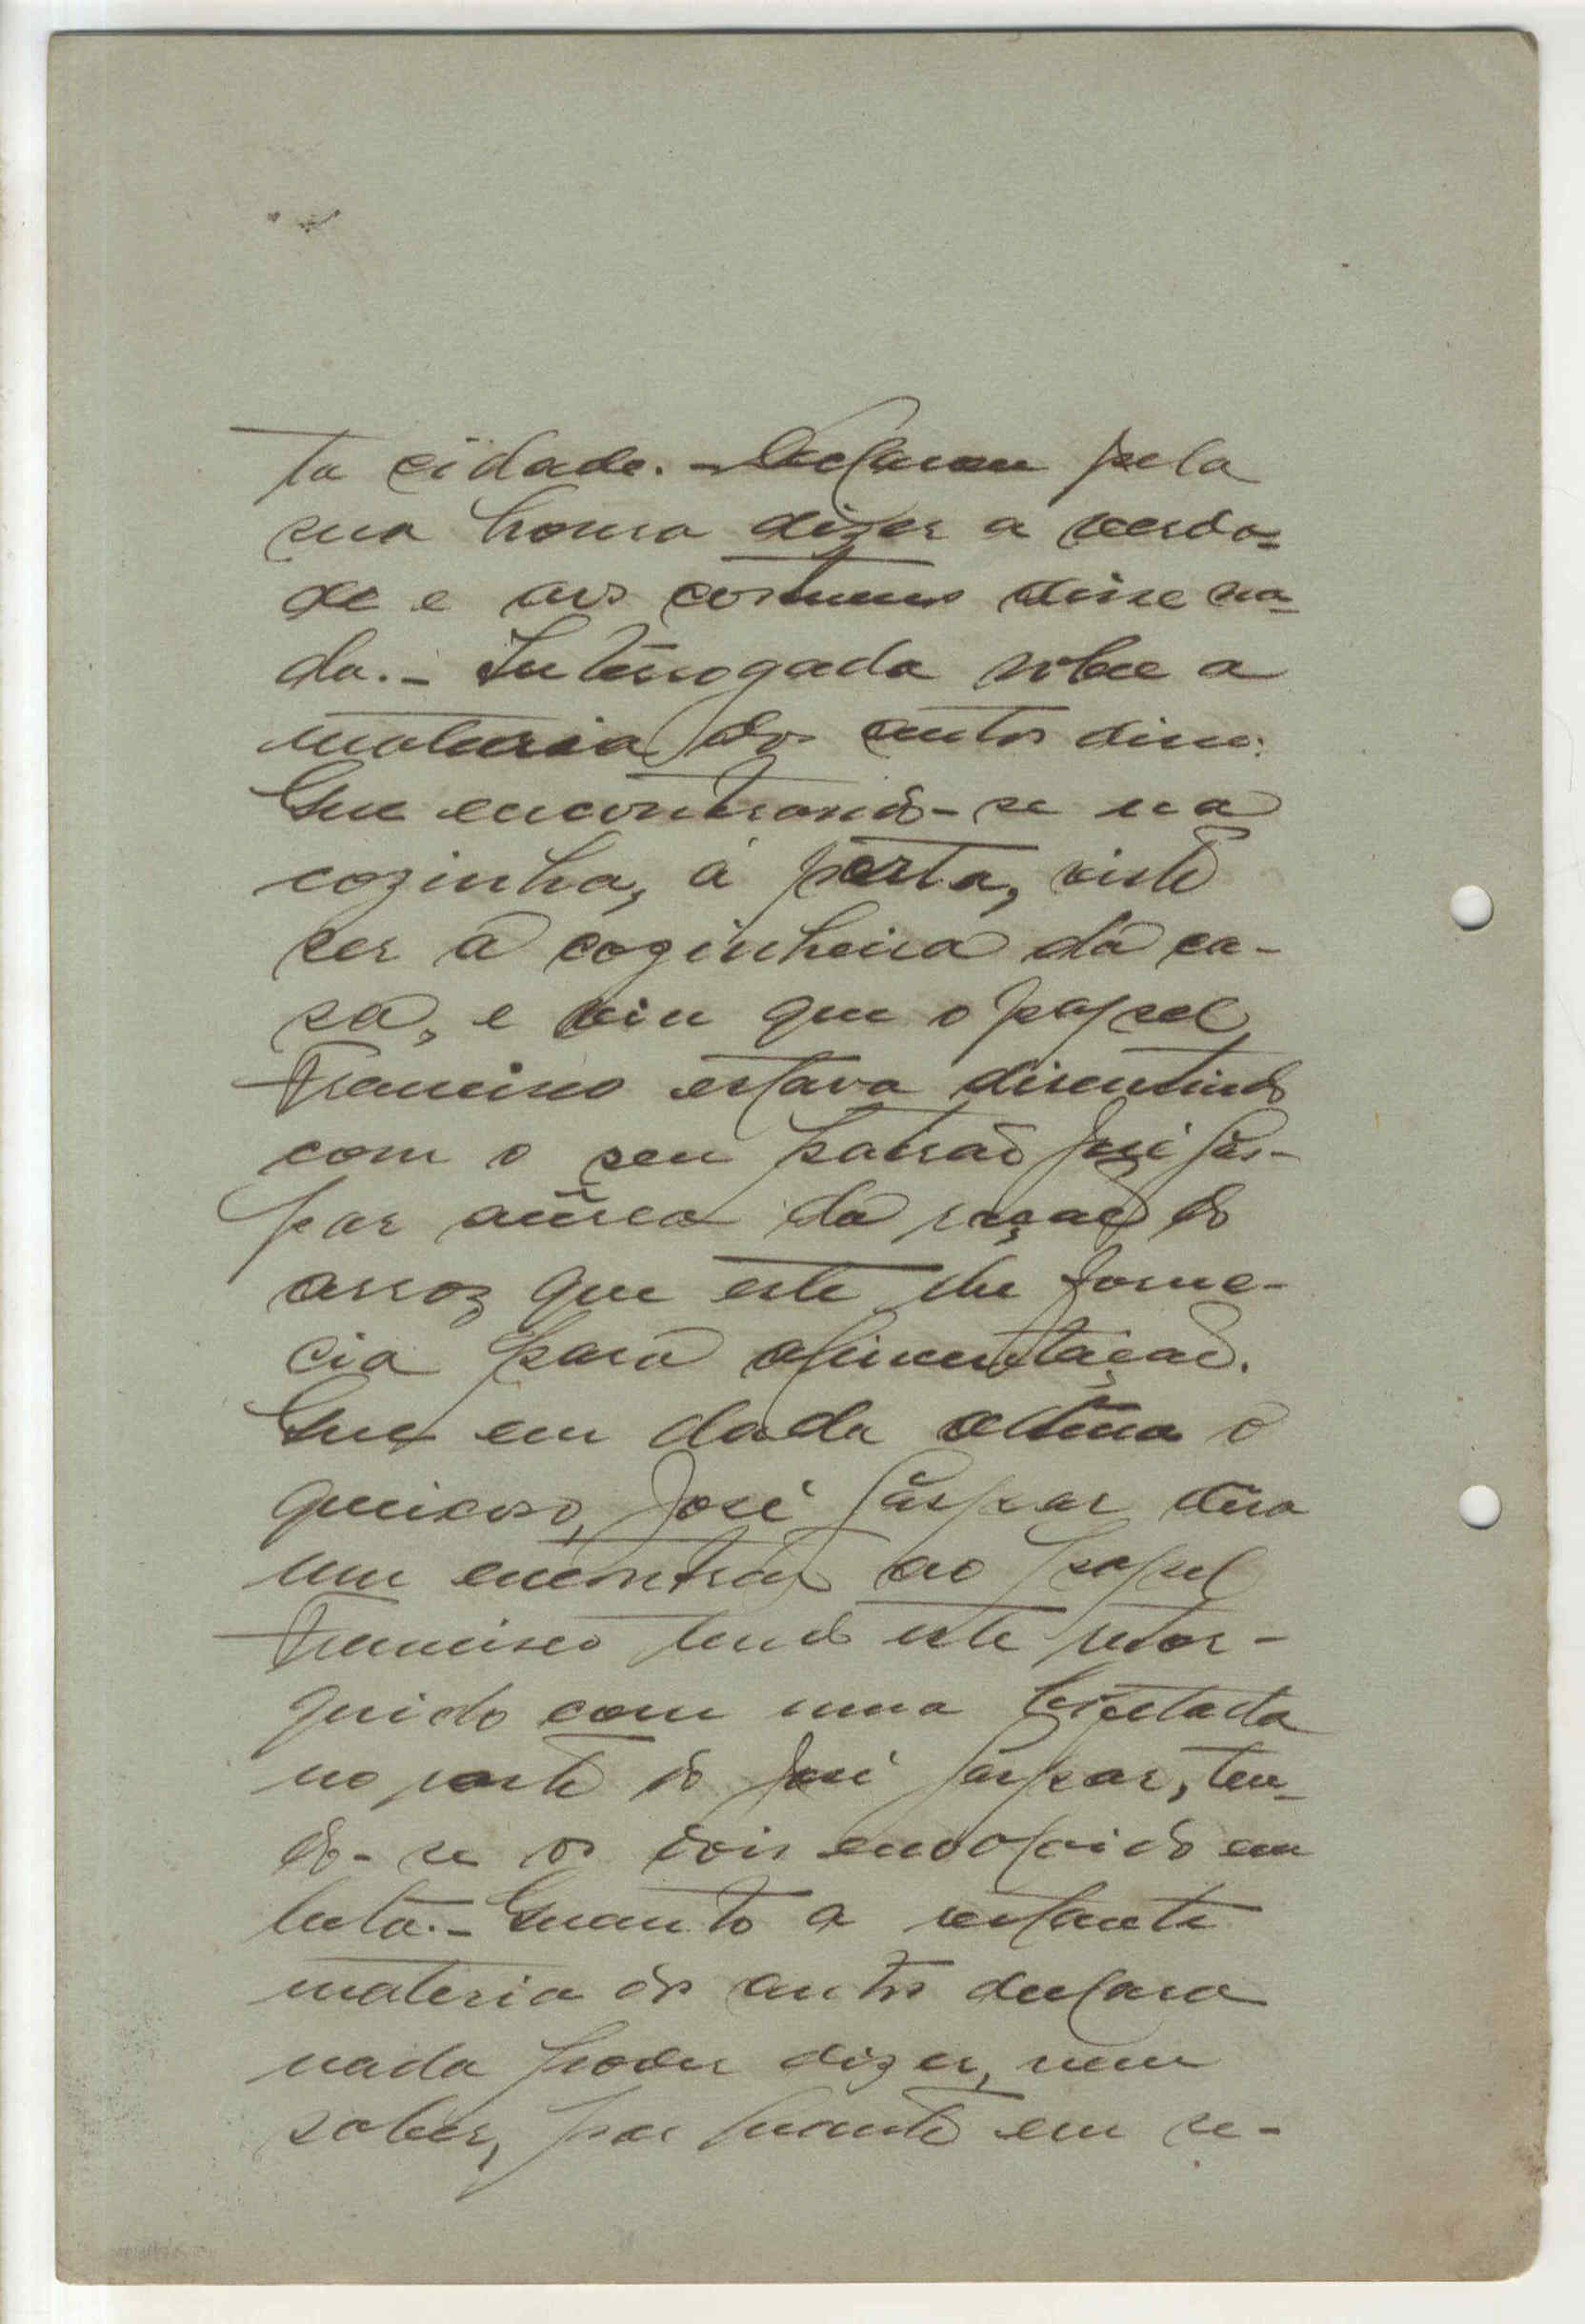 ta cidade. - Declarou pela
sua honra dizer a verda=
de e aos costumes disse na-
da. - Interrogada sobre a
materia dos autos disse:
Que encontrando-se na
cozinha, á porta, visto
ser a cozinheira da ca-
sa, e viu que o papel
Francisco estava discutindo
com o seu patrão José Gas-
par acerca da ração do
arroz que este lhe forne-
cia para alimentação.
Que em dada altura o
queixoso, José Gaspar dera
um encontrão ao papel
Francisco tendo este retor-
quido com uma bofetada
no rosto do José Gaspar, ten-
do-se os dois envolvido em
luta. - Quanto a restante
materia dos autos declara
nada poder dizer, nem
saber, por quanto em se-